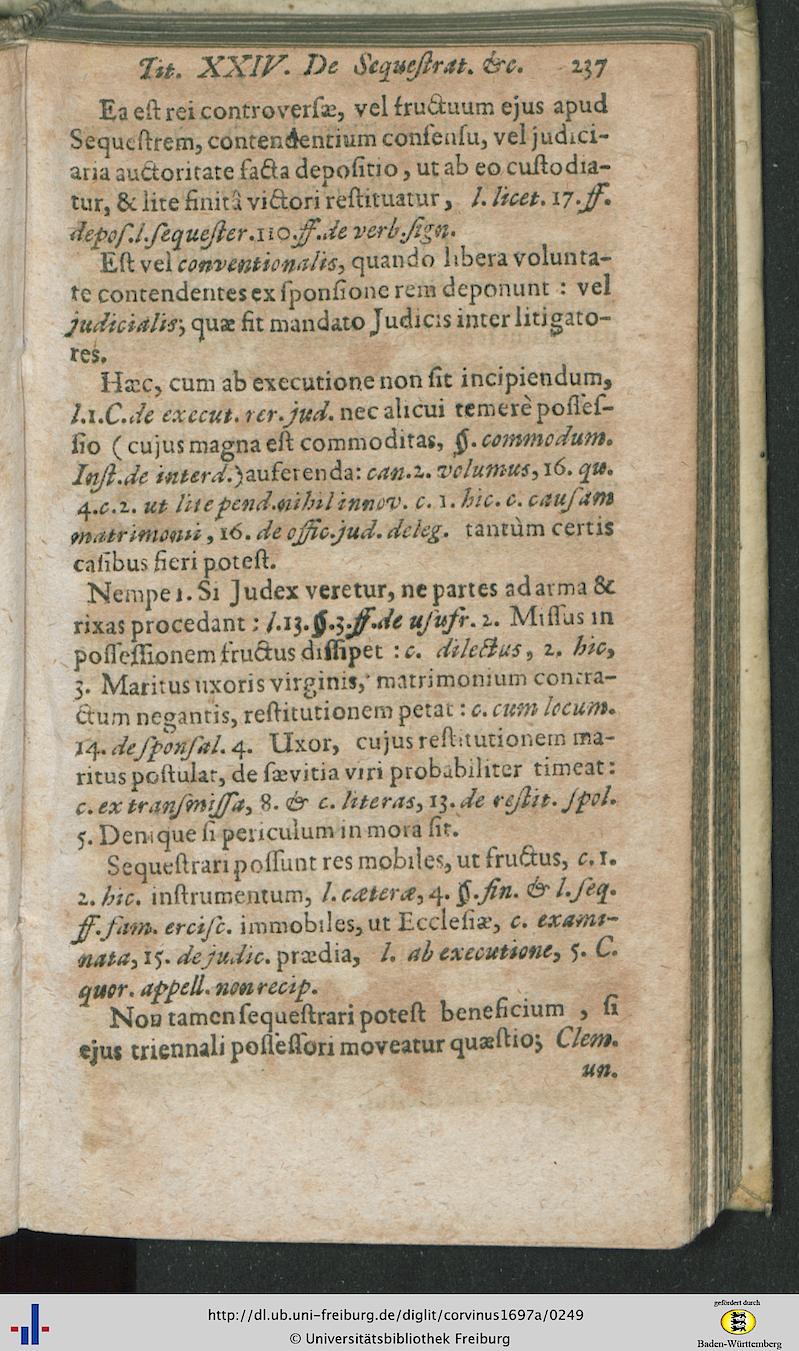 Tit. XXIV. De Sequeſtrat. &c. 237
Ea eſt rei controverſæ, vel fructuum ejus apud
Sequeſtrem, contendentium conſenſu, vel judici-
aria auctoritate facta depoſitio, ut ab eo cuſtodia-
tur, & lite finitâ victori reſtituatur, l. licet. 17. ff.
depoſ. l. ſequeſter. 110. ff. de verb. ſign.
Eſt vel conventionalis, quando libera volunta-
te contendentes ex ſponſione rem deponunt : vel
judicialis; quæ fit mandato Judicis inter litigato-
res.
Hæc, cum ab executione non ſit incipiendum,
l. 1. C. de execut. rer. jud. nec alicui temerè poſſeſ-
ſio (cujus magna eſt commoditas, §. commodum.
Inſt. de interd.) auferenda: can. 2. volumus, 16. qu.
4. c. 2. ut lite pend. nihil innov. c. 1. hic. c. cauſam
matrimonii, 16. de offic. jud. deleg. tantùm certis
caſibus fieri poteſt.
Nempe 1. Si Judex veretur, ne partes ad arma &
rixas procedant : l. 13. §. 3. ff. de uſufr. 2. Miſſus in
poſſeſſionem fructus diſſipet : c. dilectus, 2. hic,
3. Maritus uxoris virginis, matrimonium contra-
ctum negantis, reſtitutionem petat : c. cum locum.
14. de ſponſal. 4. Uxor, cujus reſtitutionem ma-
ritus poſtulat, de ſævitia viri probabiliter timeat :
c. ex tranſmiſſa, 8. & c. literas, 13. de reſtit. ſpol.
5. Denique ſi periculum in mora ſit.
Sequeſtrari poſſunt res mobiles, ut fructus, c. 1.
2. hic. inſtrumentum, l. cæteræ, 4. §. fin. & l. ſeq.
ff. fam. erciſc. immobiles, ut Eccleſiæ, c. exami-
nata, 15. de judic. prædia, l. ab executione, 5. C.
quor. appell. non recip.
Non tamen ſequeſtrari poteſt beneficium , ſi
ejus triennali poſſeſſori moveatur quæſtio; Clem.
un.
http://dl.ub.uni-freiburg.de/diglit/corvinus1697a/0249
© Universitätsbibliothek Freiburg
gefördert durch
Baden-Württemberg